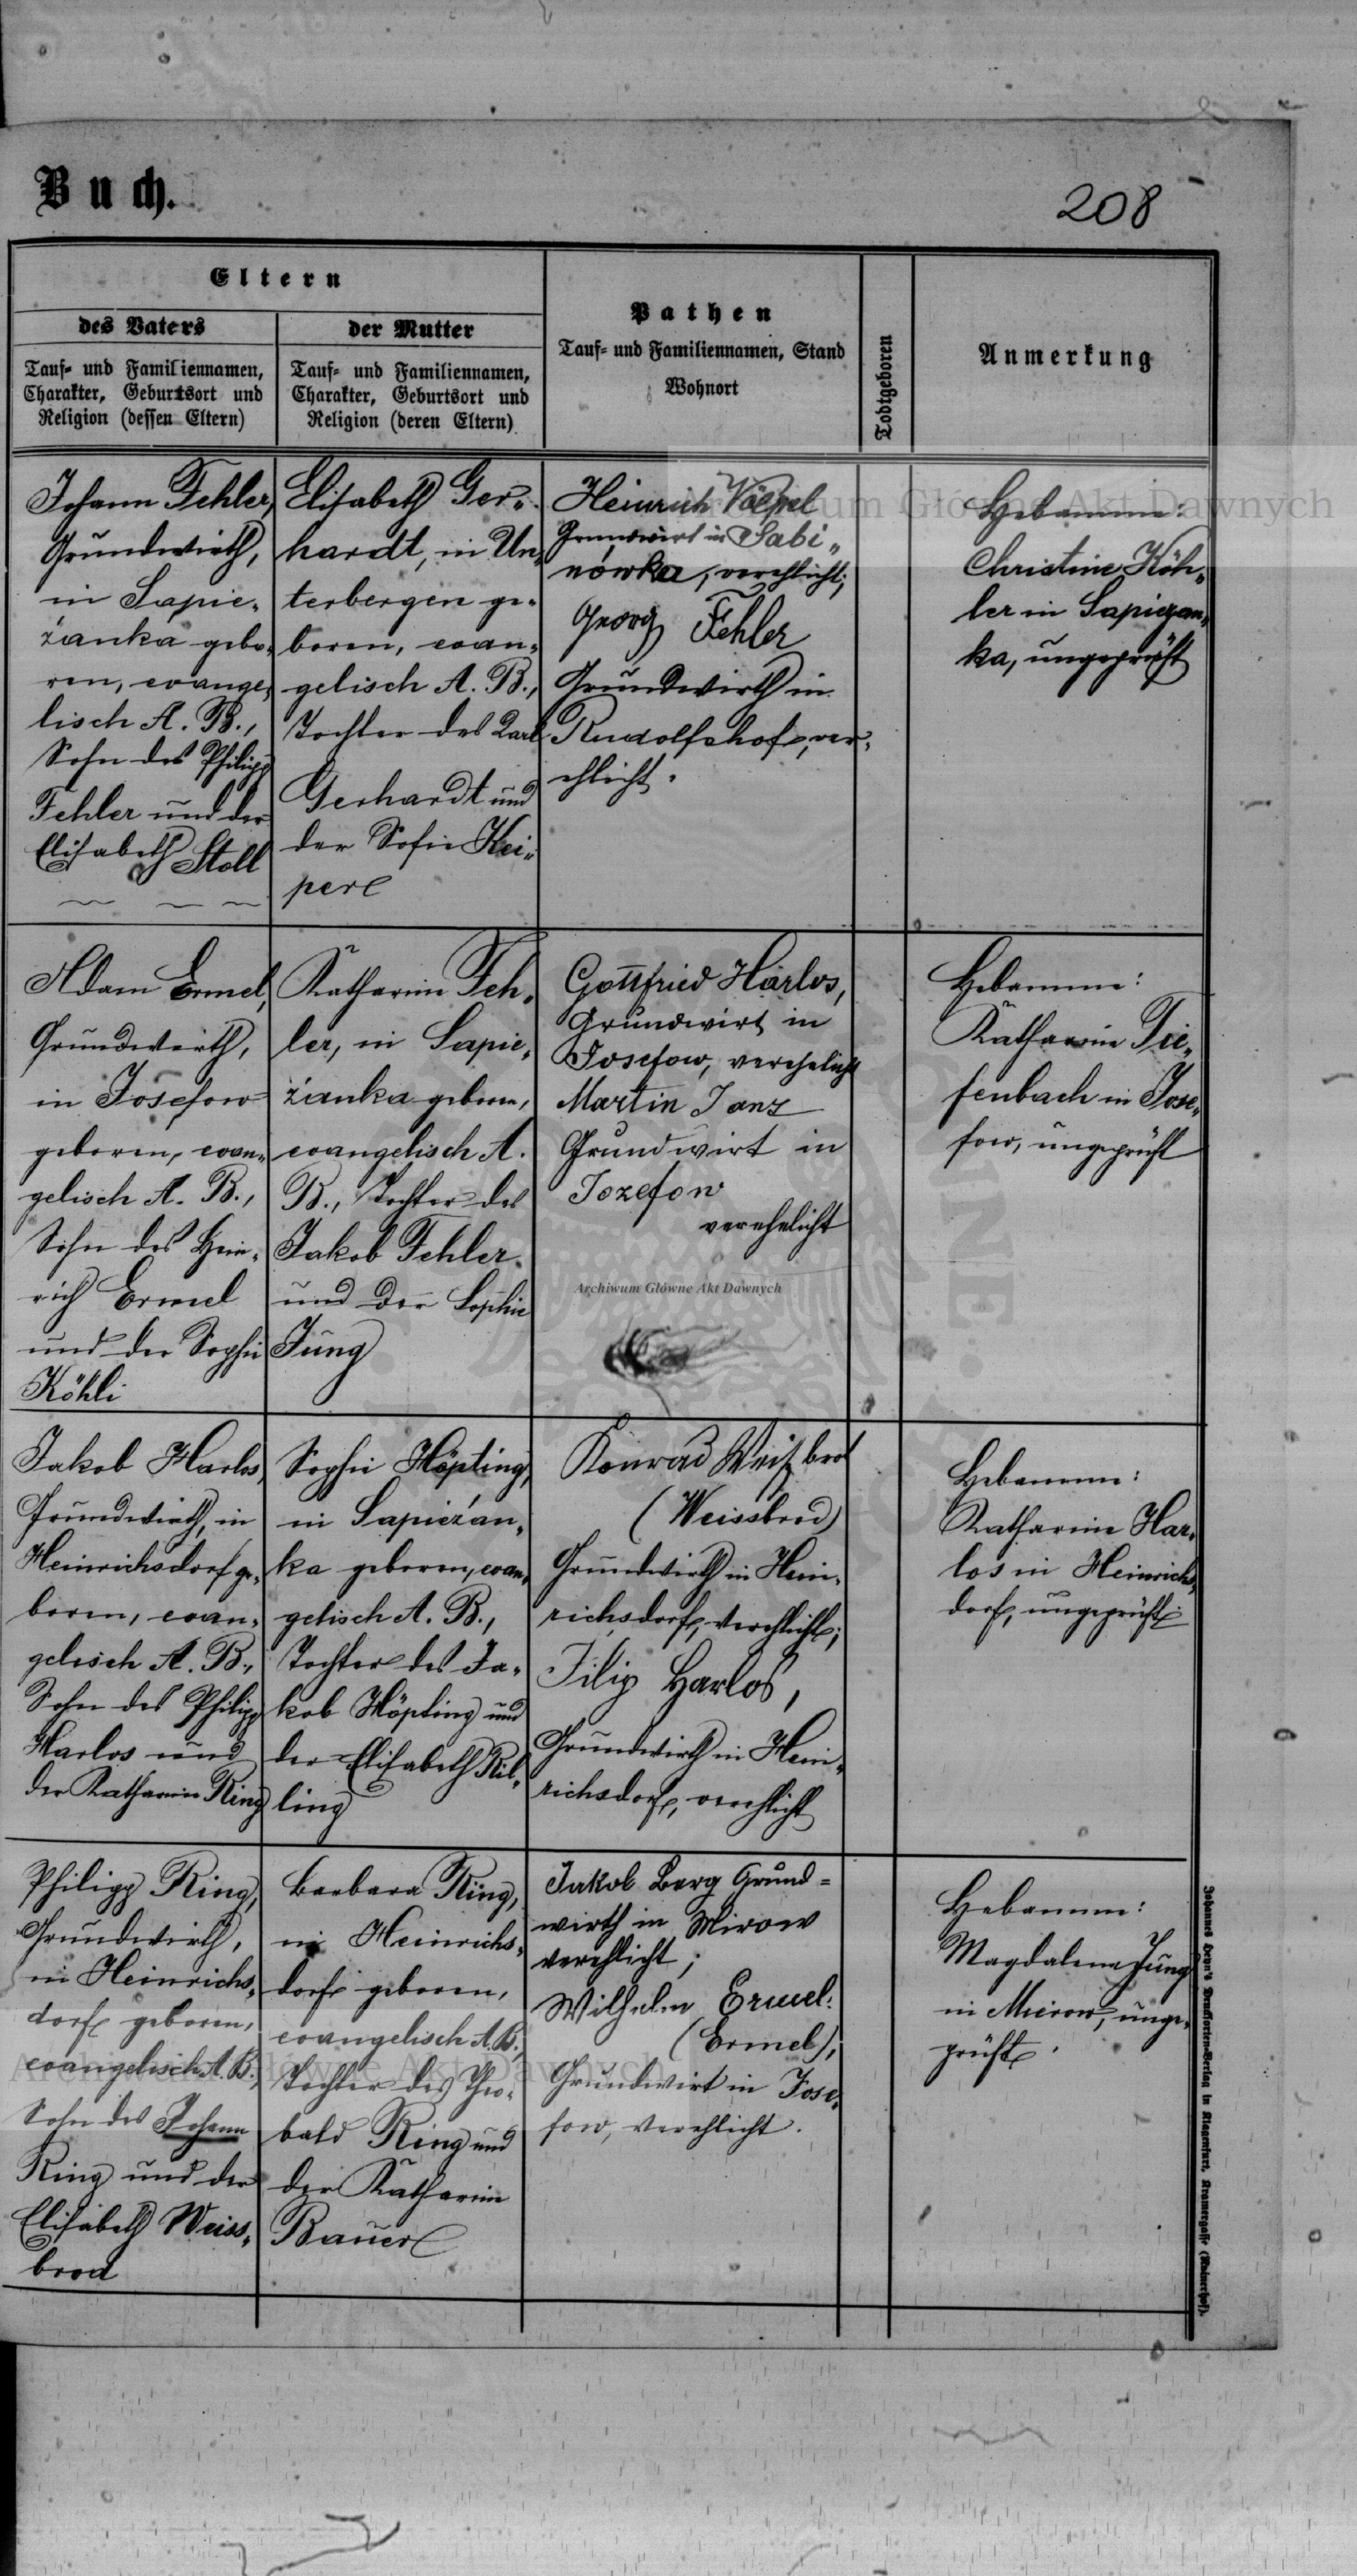 Buch.
208
Eltern
des Vaters
Tauf- und Familiennamen,
Charakter, Geburtsort und
Religion (dessen Eltern)
der Mutter
Tauf- und Familiennamen,
Charakter, Geburtsort und
Religion (deren Eltern)
Pathen
Tauf- und Familiennamen, Stand
Wohnort
Todtgeboren
Anmerkung
Johann Fehler,
Grundwirth,
in Sapie„
żanka gebo„
ren, evange„
lisch A. B.,
Sohn des Philipp
Fehler und der
Elisabeth Stoll
Elisabeth Ger„
hardt, in Un„
terbergen ge„
boren, evan„
gelisch A. B.,
Tochter des Karl
Gerhardt und
der Sofie Kei„
per
Heinrich Völpel
Grundwirt in Sabi„
nówka, verehlicht;
Georg Fehler
Grundwirth in
Rudolfshof, ver„
ehlicht.
Hebamme:
Christine Köh„
ler in Sapiezan„
ka, ungeprüft
Adam Ermel,
Grundwirth,
in Josefow
geboren, evan„
gelisch A. B.,
Sohn des Hein„
rich Ermel
und der Sophie
Köhli
Katharine Feh„
ler, in Sapie„
żanka geboren,
evangelisch A.
B., Tochter des
Jakob Fehler
und der Sophie
Jung
Gottfried Harlos,
Grundwirt in
Josefow, verehelicht
Martin Janz
Grundwirt in
Jozefow
verehelicht
Hebamme:
Katharine Tie„
fenbach in Jose„
fow, ungeprüft
Jakob Harlos,
Grundwirth, in
Heinrichsdorf ge„
boren, evan„
gelisch A. B.,
Sohn des Philipp
Harlos und
der Katharine Ring
Sophie Höpting,
in Sapieżan„
ka geboren, evan„
gelisch A. B.,
Tochter des Ja„
kob Höpting und
der Elisabeth Ril„
ling
Konrad Weißbrod
(Weissbrod)
Grundwirth in Hein„
richsdorf, verehlicht;
Filip Harlos,
Grundwirth in Hein„
richsdorf, verehlicht
Hebamme:
Katharine Har„
los in Heinrichs„
dorf, ungeprüft
Philipp Ring,
Grundwirth,
in Heinrichs„
dorf geboren,
evangelisch A. B.,
Sohn des Johann
Ring und der
Elisabeth Weiss„
brod
Barbara Ring,
in Heinrichs„
dorf geboren,
evangelisch A. B.,
Tochter des Theo„
bald Ring und
der Katharine
Bauer
Jakob Berg Grund=
wirth in Mirow
verehlicht;
Wilhelm Ermel
(Ermel),
Grundwirt in Jose„
fow, verehlicht.
Hebamme:
Magdalena Jung
in Mierow, unge„
prüft.
Johannes Heyn's Drucksorten-Verlag in Klagenfurt, Kramergasse
Archiwum Główne Akt Dawnych
Archiwum Główne Akt Dawnych
Archiwum Główne Akt Dawnych